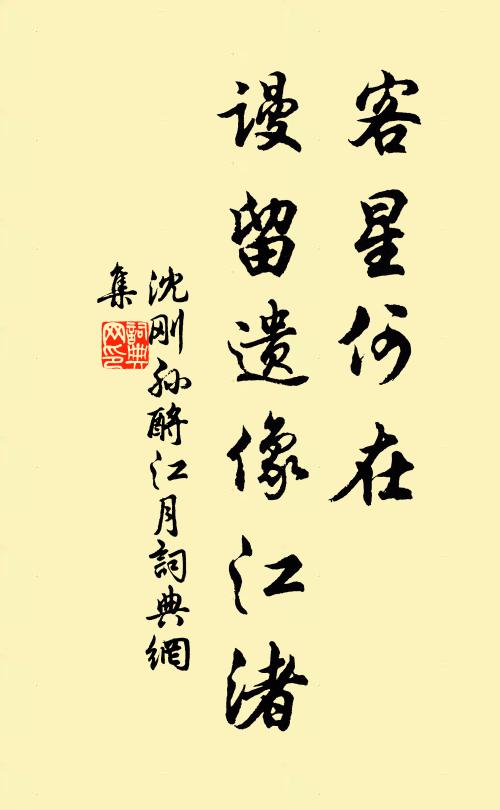 客星何在
謾留遗像江渚
沈刚孙酹江月詞典網
集
詞典网印